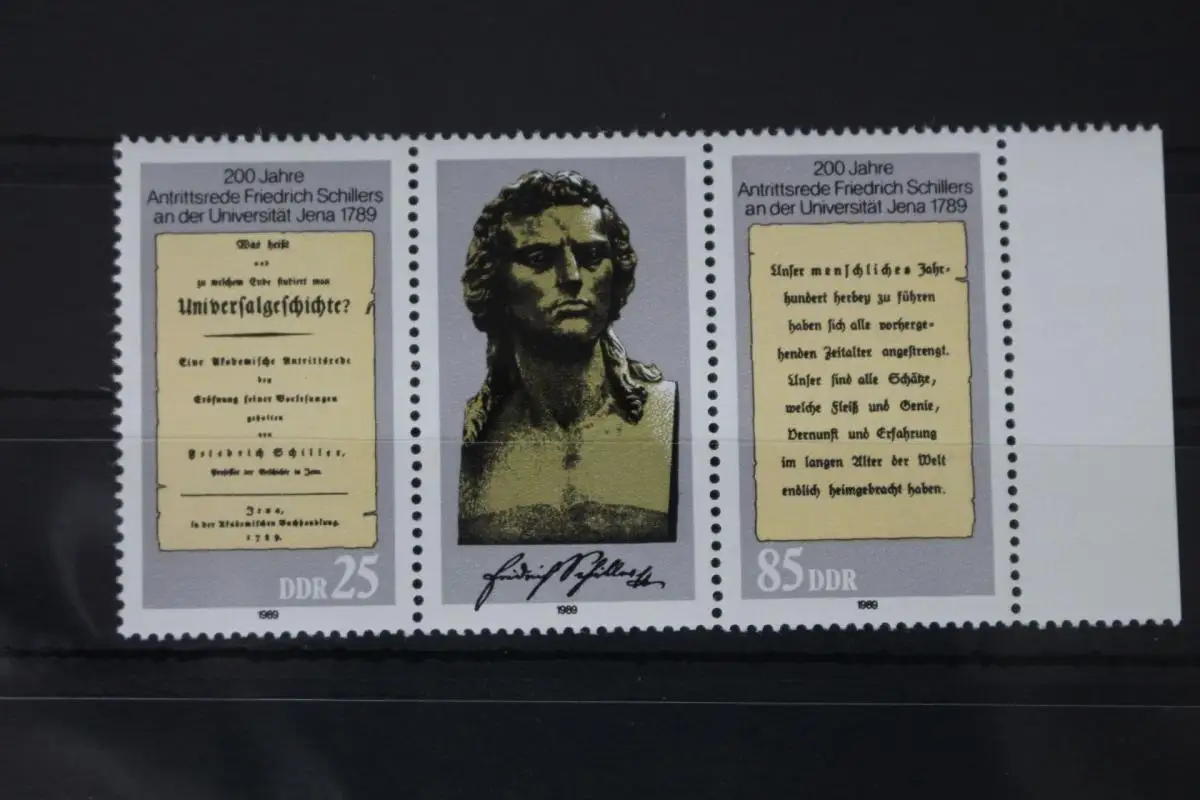 200 Jahre
Antrittsrede Friedrich Schillers
an der Universität Jena 1789
Was heißt
und
zu welchem Ende studiert man
Universalgeschichte?
Eine Akademische Antrittsrede
bey
Eröfnung seiner Vorlesungen
gehalten
von
Friedrich Schiller,
Professor der Geschichte in Jena.
Jena,
in der Akademischen Buchhandlung.
1789.
DDR 25
1989
Friedrich Schiller
1989
200 Jahre
Antrittsrede Friedrich Schillers
an der Universität Jena 1789
Unser menschliches Jahr-
hundert herbey zu führen
haben sich alle vorherge-
henden Zeitalter angestrengt.
Unser sind alle Schätze,
welche Fleiß und Genie,
Vernunft und Erfahrung
im langen Alter der Welt
endlich heimgebracht haben.
85 DDR
1989